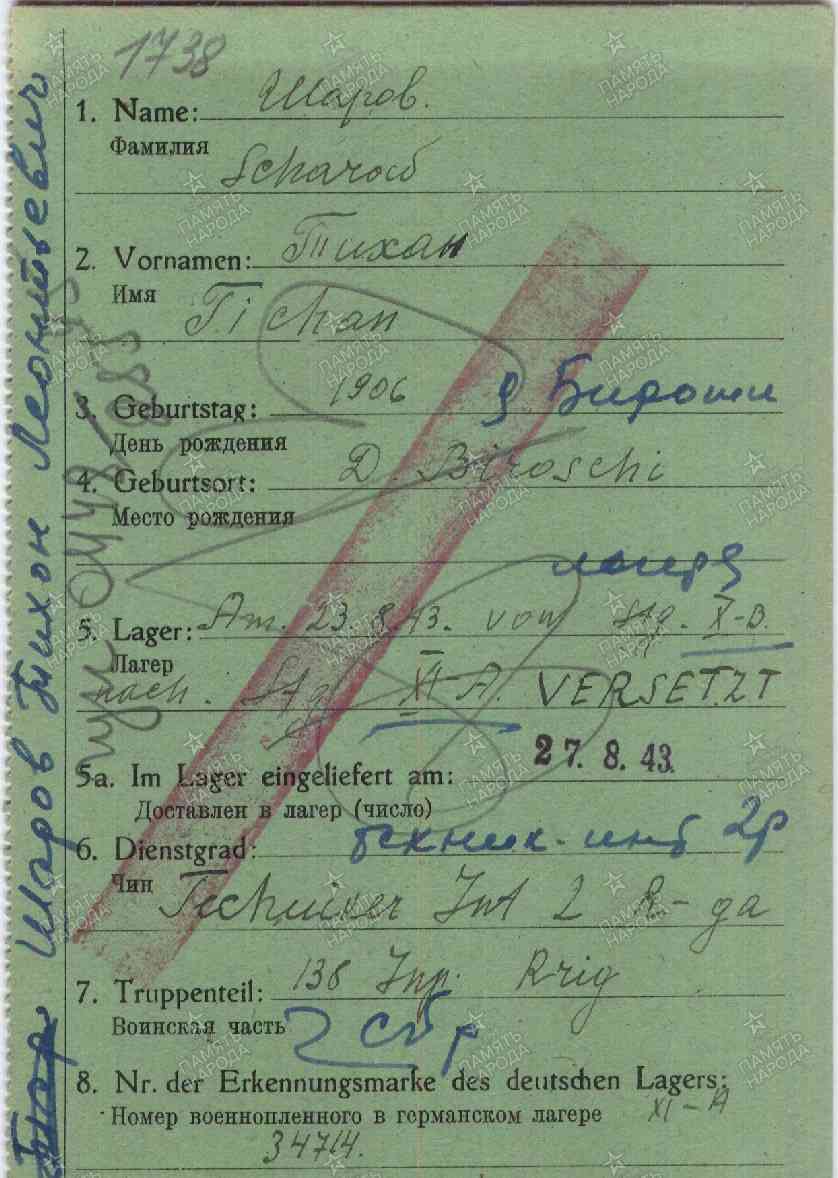 1738
1. Name: Шаров.
Фамилия
Scharow
2. Vornamen: Тихан
Имя
Tichan
3. Geburtstag: 1906 д Бироши
День рождения
4. Geburtsort: D. Biroschi
Место рождения
лагеря
5. Lager: Am. 23.8.43. von Stg. X-B.
Лагер
nach. Stg XI-A. VERSETZT
27. 8. 43.
5a. Im Lager eingeliefert am:
Доставлен в лагер (число)
техник-инт 2р
6. Dienstgrad:
Чин
Techniker Int 2 R-ga
7. Truppenteil: 138
Воинская часть
8. Nr. der Erkennungsmarke des deutschen Lagers:
Номер военнопленного в германском лагере XI-A
34714.
Шаров Тихон Леонтьевич
ПАМЯТЬ НАРОДА